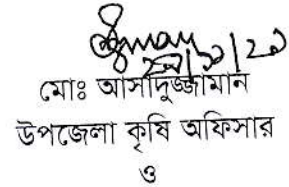 মোঃ আসাদুজ্জামান
উপজেলা কৃষি অফিসার
ও